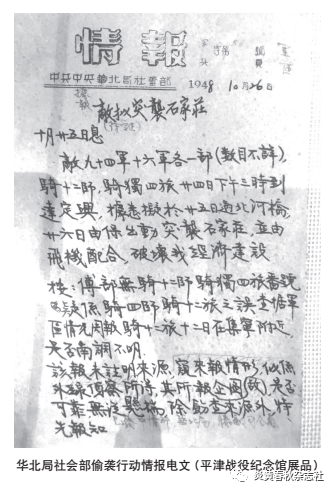 情報
中共中央華北局社會部
1948 10月26日
敵拟突襲石家莊
十月廿五日息
敵九十四軍十六軍各一部(數目不詳),
騎十二師,騎獨四旅廿四日下午三時到
達定興,擬於廿五日過北河橋
廿六日由保出動突襲石家莊,並由
飛機配合,破壞我經濟建設
按:傅部無騎十二師騎獨四旅番號
疑係騎四師騎十二旅之誤,軍
區情况周報騎十二旅十二日在集寧附近
是否南調不明
該報未註明來源,來報情形似係
外綫偵察所得,其所報企圖(敵)是否
可靠無從懸揣,除查來源外,特
先報知
华北局社会部偷袭行动情报电文(平津战役纪念馆展品)
炎黄春秋杂志社